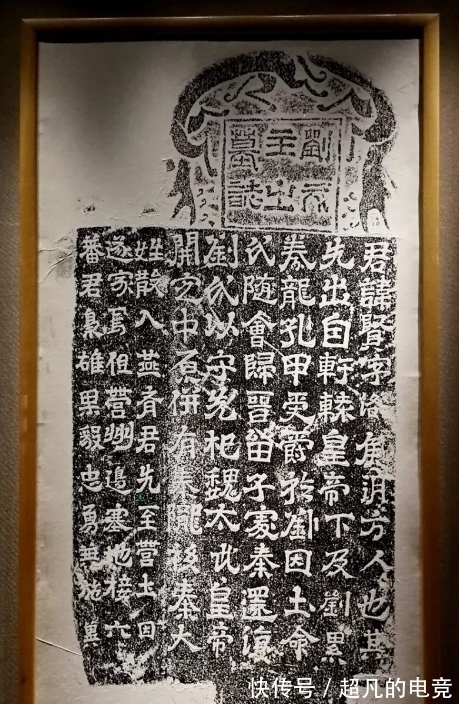 劉戌
主之
墓誌
君諱賢字洛侯朔方人也其
先出自軒轅皇帝下及劉累
豢龍孔甲受爵於劉因土命
氏隨會歸晉留子處秦還復
劉氏以守先祀魏太武皇帝
開定中原併有秦隴移秦大
姓散入燕齊君先至營土因
遂家焉但營州邊塞地接六
蕃君梟雄果毅忠勇兼施冀
快传号/超凡的电竞